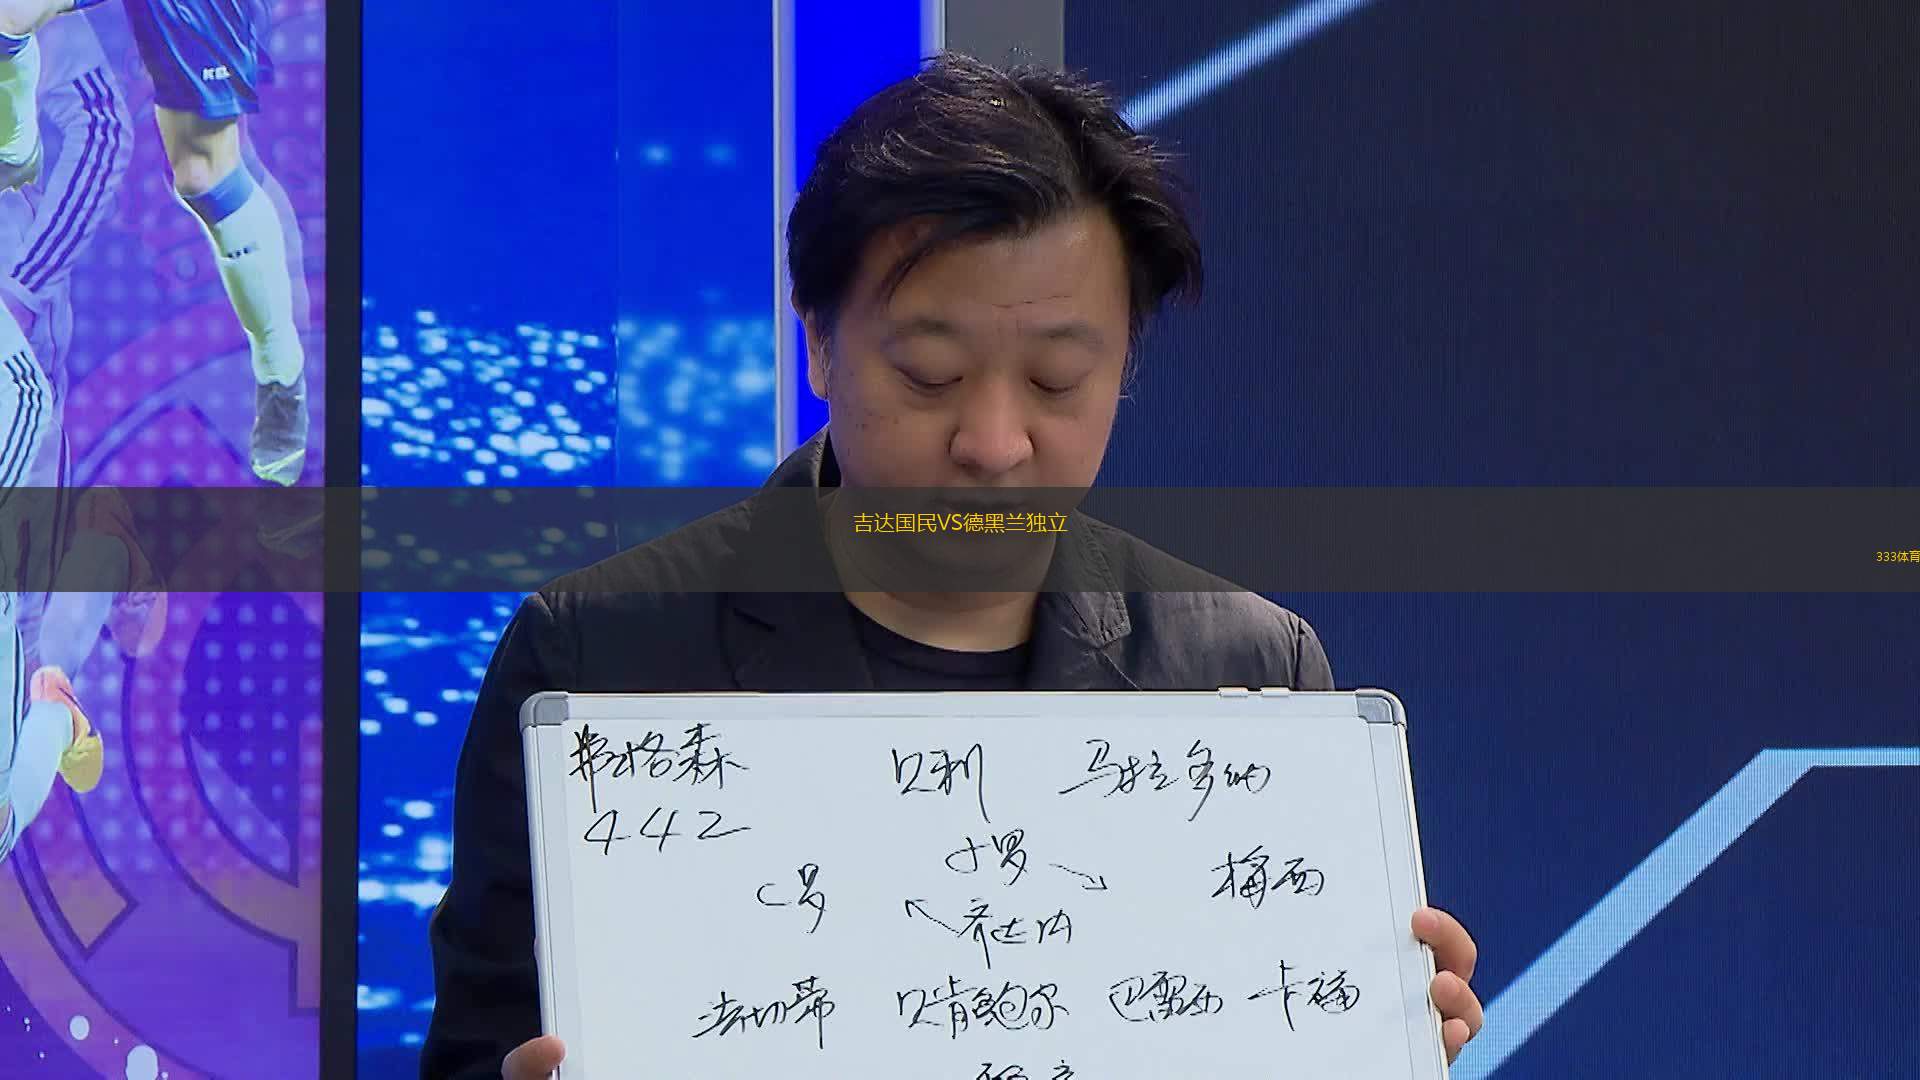 吉达国民VS德黑兰独立
333体育
弗格森 贝利 马拉多纳
442
小罗
C罗 梅西
齐达内
法切蒂 贝肯鲍尔 巴雷西 卡福